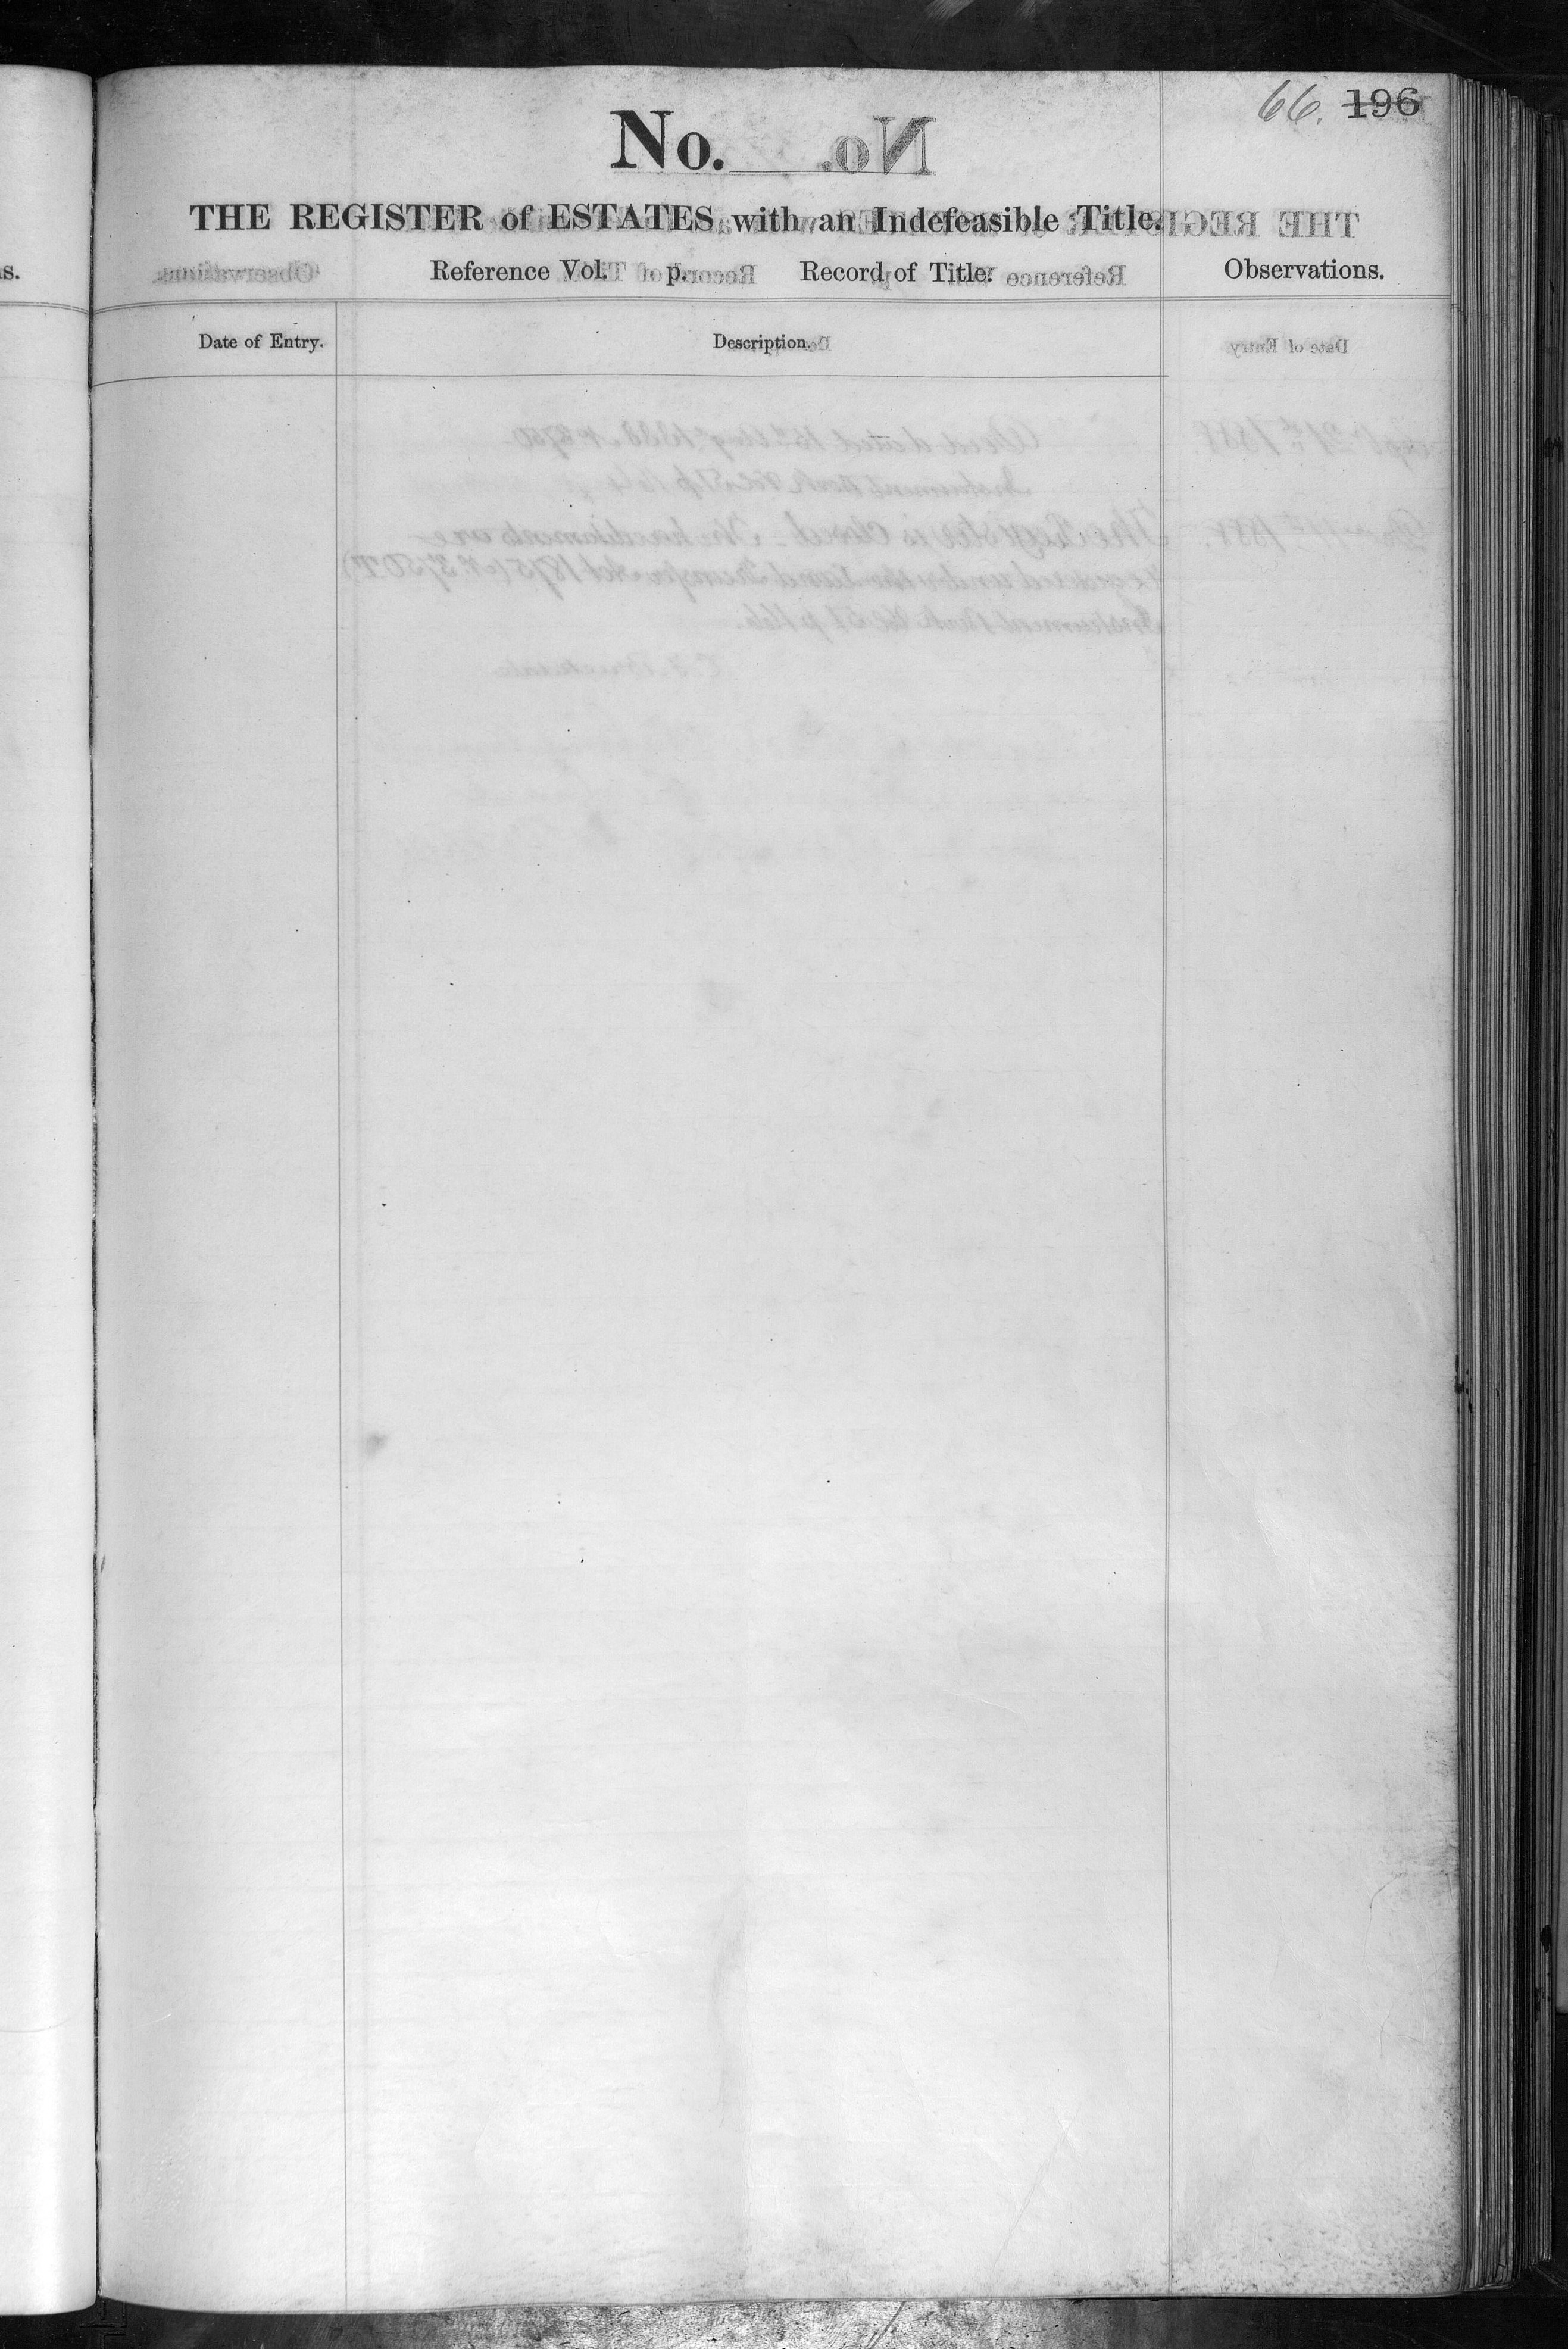 66. 196
No.
THE REGISTER of ESTATES with an Indefeasible Title.
s. Reference Vol. p. Record of Title. Observations.
Date of Entry. Description.